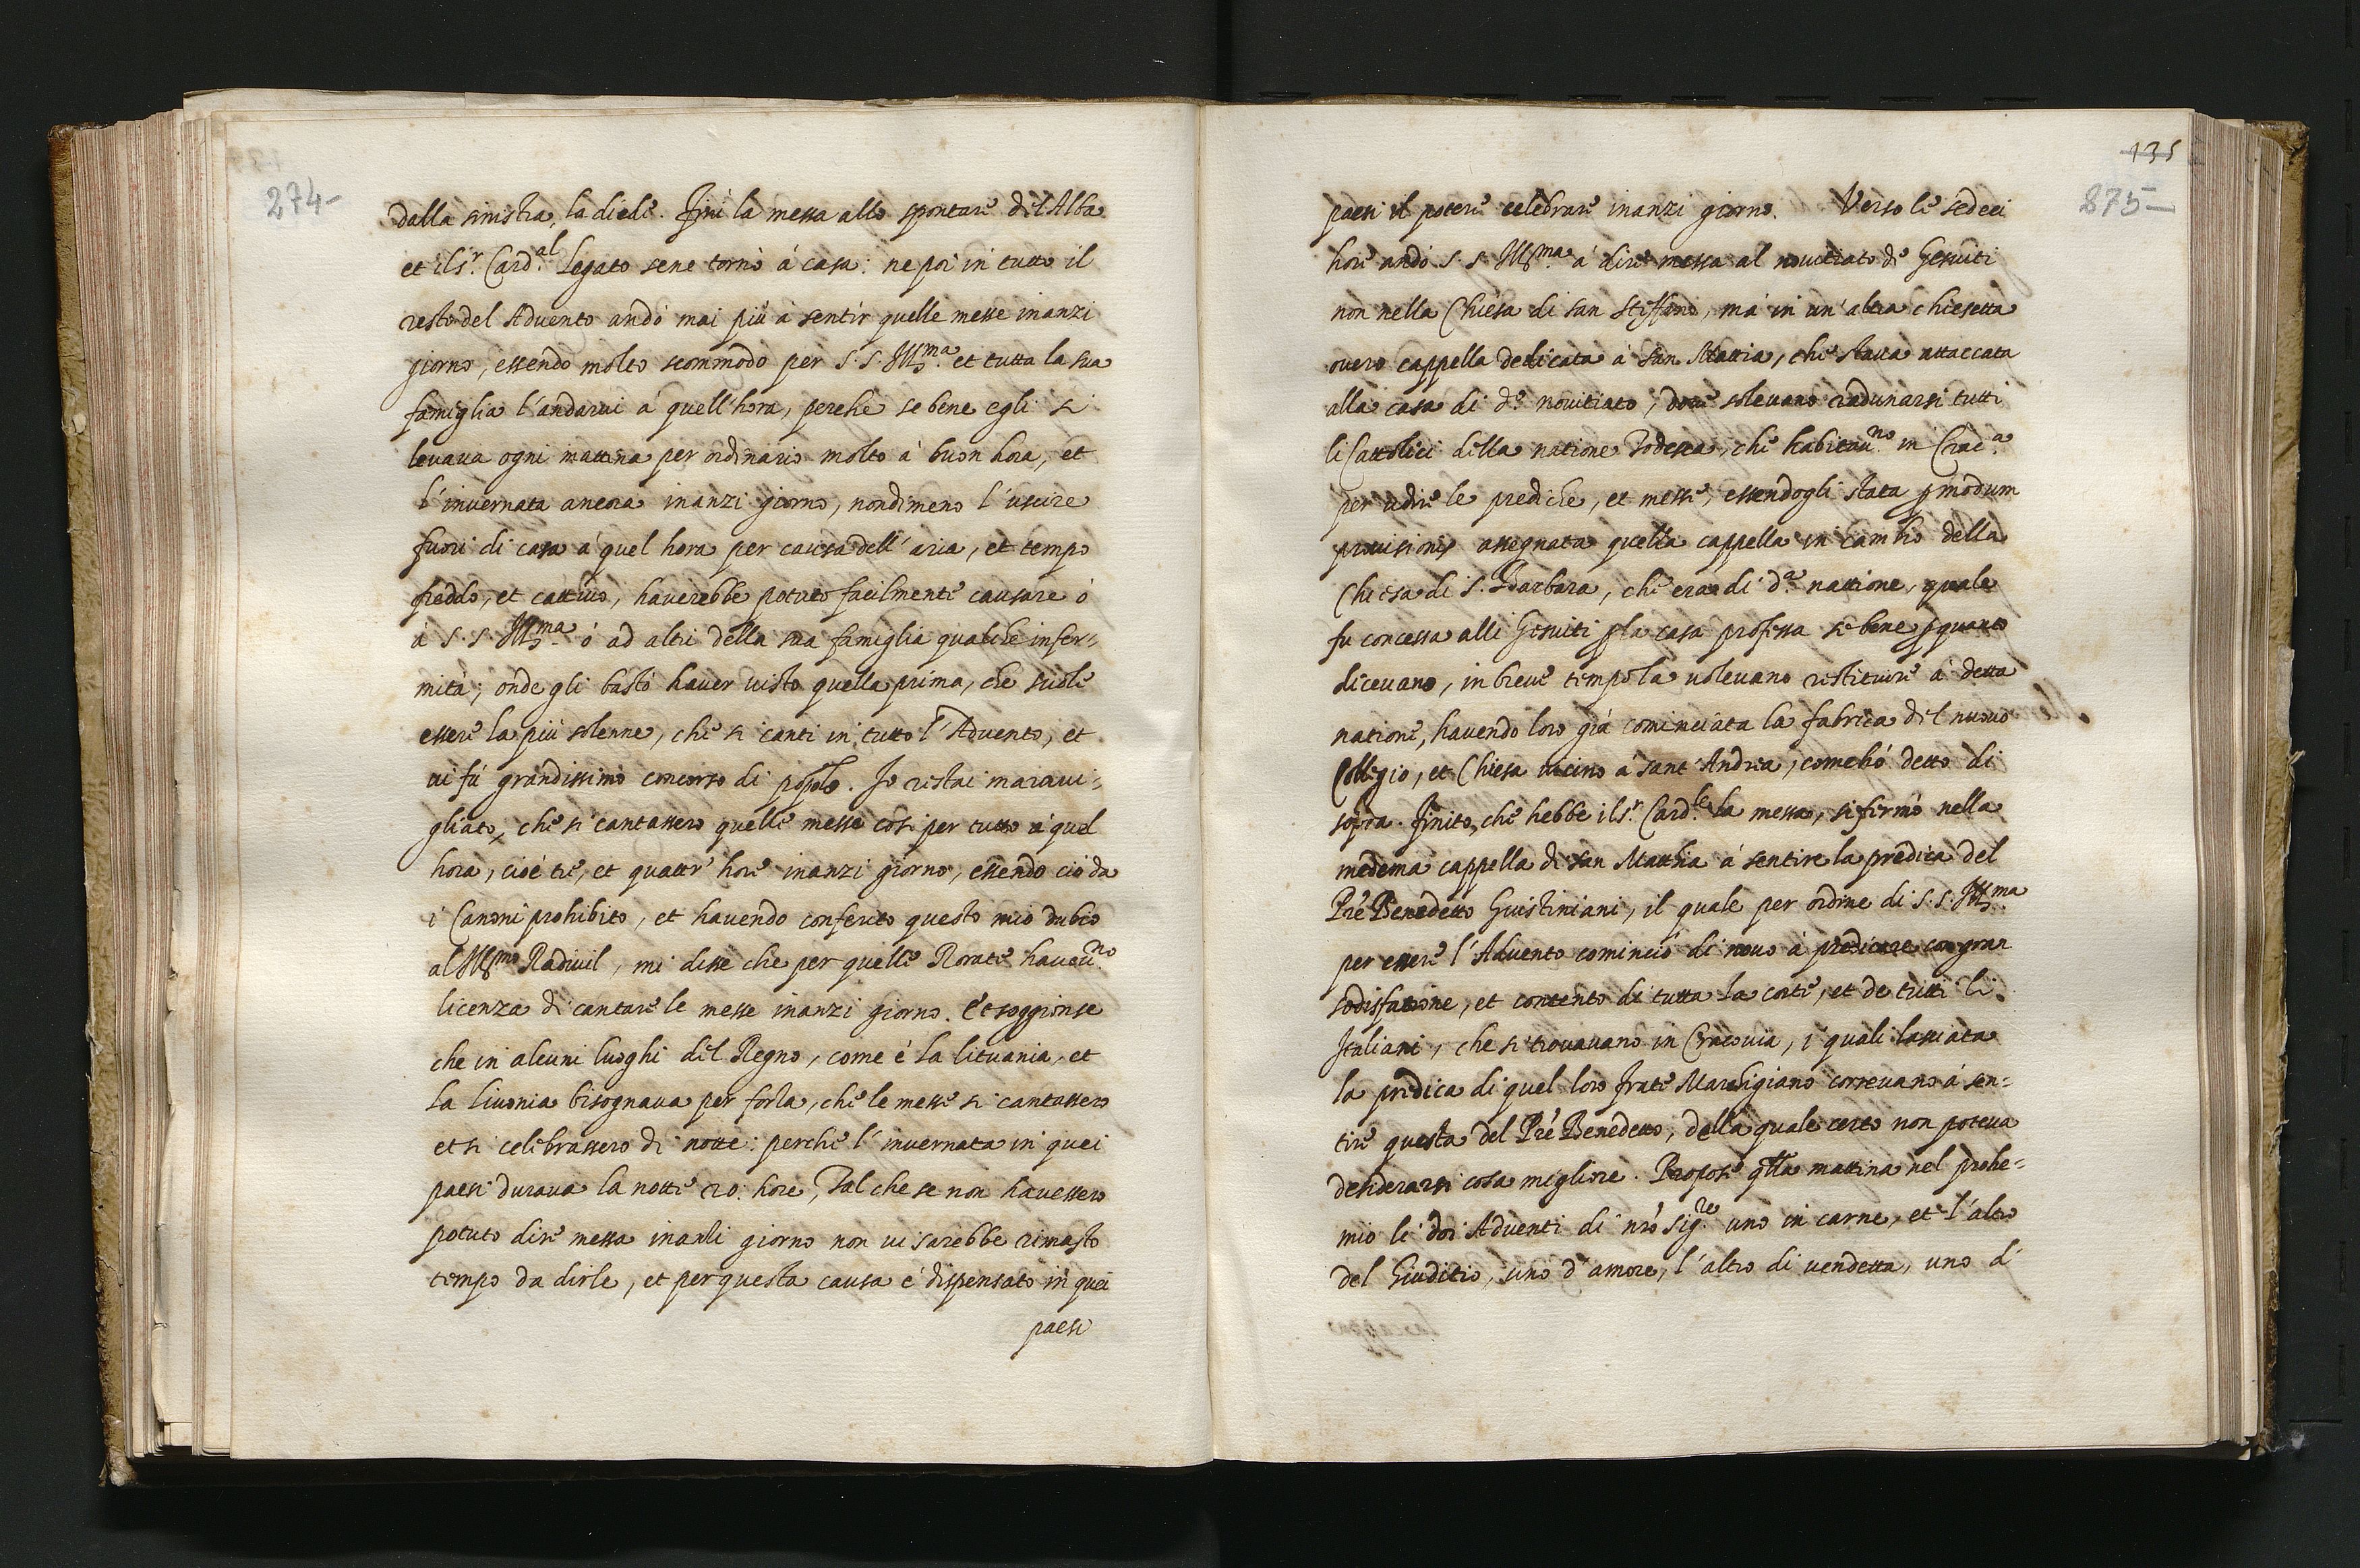 274-
dalla sinistra, la diede. Finì la messa allo spontare del Alba
et il s.r Card.al Legato sene tornò á casa: ne poi in tutto il
resto del Advento andò mai più à sentir quelle messe inanzi
giorno, essendo molto scommodo per S. S. Ill.ma et tutta la sua
famiglia l'andarui a quell'hora, perche se bene egli si
levava ogni mattina per ordinario molto à buon hora, et
l'invernata ancora inanzi giorno, nondimeno l'uscire
fuori di casa a quel hora per causa dell'aria, et tempo
freddo, et cattivo, haverebbe potuto facilmente causare ò
à S. S. Ill.ma ó ad altri della sua famiglia qualche infer-
mità; onde gli bastò haver visto quella prima, che suole
essere la più solenne, che si canti in tutto l'Advento, et
vi fù grandissimo concorso di popolo. Io restai maravi-
gliato, che si cantassero quelle messe così per tutto a quel
hora, cioè tre, et quattr' hore inanzi giorno, essendo ciò da
i Canoni prohibito, et havendo conferito questo mio dubio
al Ill.mo Radivil, mi disse che per quelle Rorate haveu.no
licenza di cantare le messe inanzi giorno. Et soggionse
che in alcuni luoghi del Regno, come è la lituania, et
la livonia bisognava per forza, che le messe si cantassero
et si celebrassero di notte: perche l'invernata in quei
paesi durava la notte 20. hore, Tal che se non havessero
potuto dire messa inanzi giorno non vi sarebbe rimasto
tempo da dirle, et per questa causa é dispensato in quei
paesi
135
275-
paesi il potere celebrare inanzi giorno. Verso le sedeci
hore andò S. S. Ill.ma á dire messa al novitiato de Gesuiti
non nella Chiesa di san Steffano, mà in un'altra chiesetta
overo cappella dedicata à san Mattia, che stava attaccata
alla casa di d.o novitiato, dove solevano radunarsi tutti
li Cattolici della natione Todesca, che habitau.no in Crac.a
per udire le prediche, et messe, essendogli stata p modum
provisionis assegnata quella cappella in cambio della
Chiesa di S. Barbara, che era di d.a nattione, quale
fu concessa alli Gesuiti p la casa professa se bene p quanto
dicevano, in breve tempo la volevano restituire á detta
natione, havendo loro già cominciata la fabrica del nuovo
Collegio, et Chiesa vicino á sant'Andrea, come hó detto di
sopra. Finito, che hebbe il s.r Card.le la messa, si fermò nella
medema cappella di san Matthia á sentire la predica del
Pre Benedetto Giustiniani, il quale per ordine di S. S. Ill.ma
per essere l'Advento cominciò di novo à predicare con gran
sodisfattione, et contento di tutta la corte, et de tutti li
Italiani, che si trovavano in Cracovia, i quali lasciata
la predica di quel loro frate Marchigiano correvano á sen-
tire questa del Pre Benedetto, della quale certo non poteva
desiderarsi cosa migliore. Propose qlla mattina nel prohe-
mio li doi Adventi di nro sig.re uno in carne, et l'altro
del Giuditio, uno d'amore, l'altro di vendetta, uno di